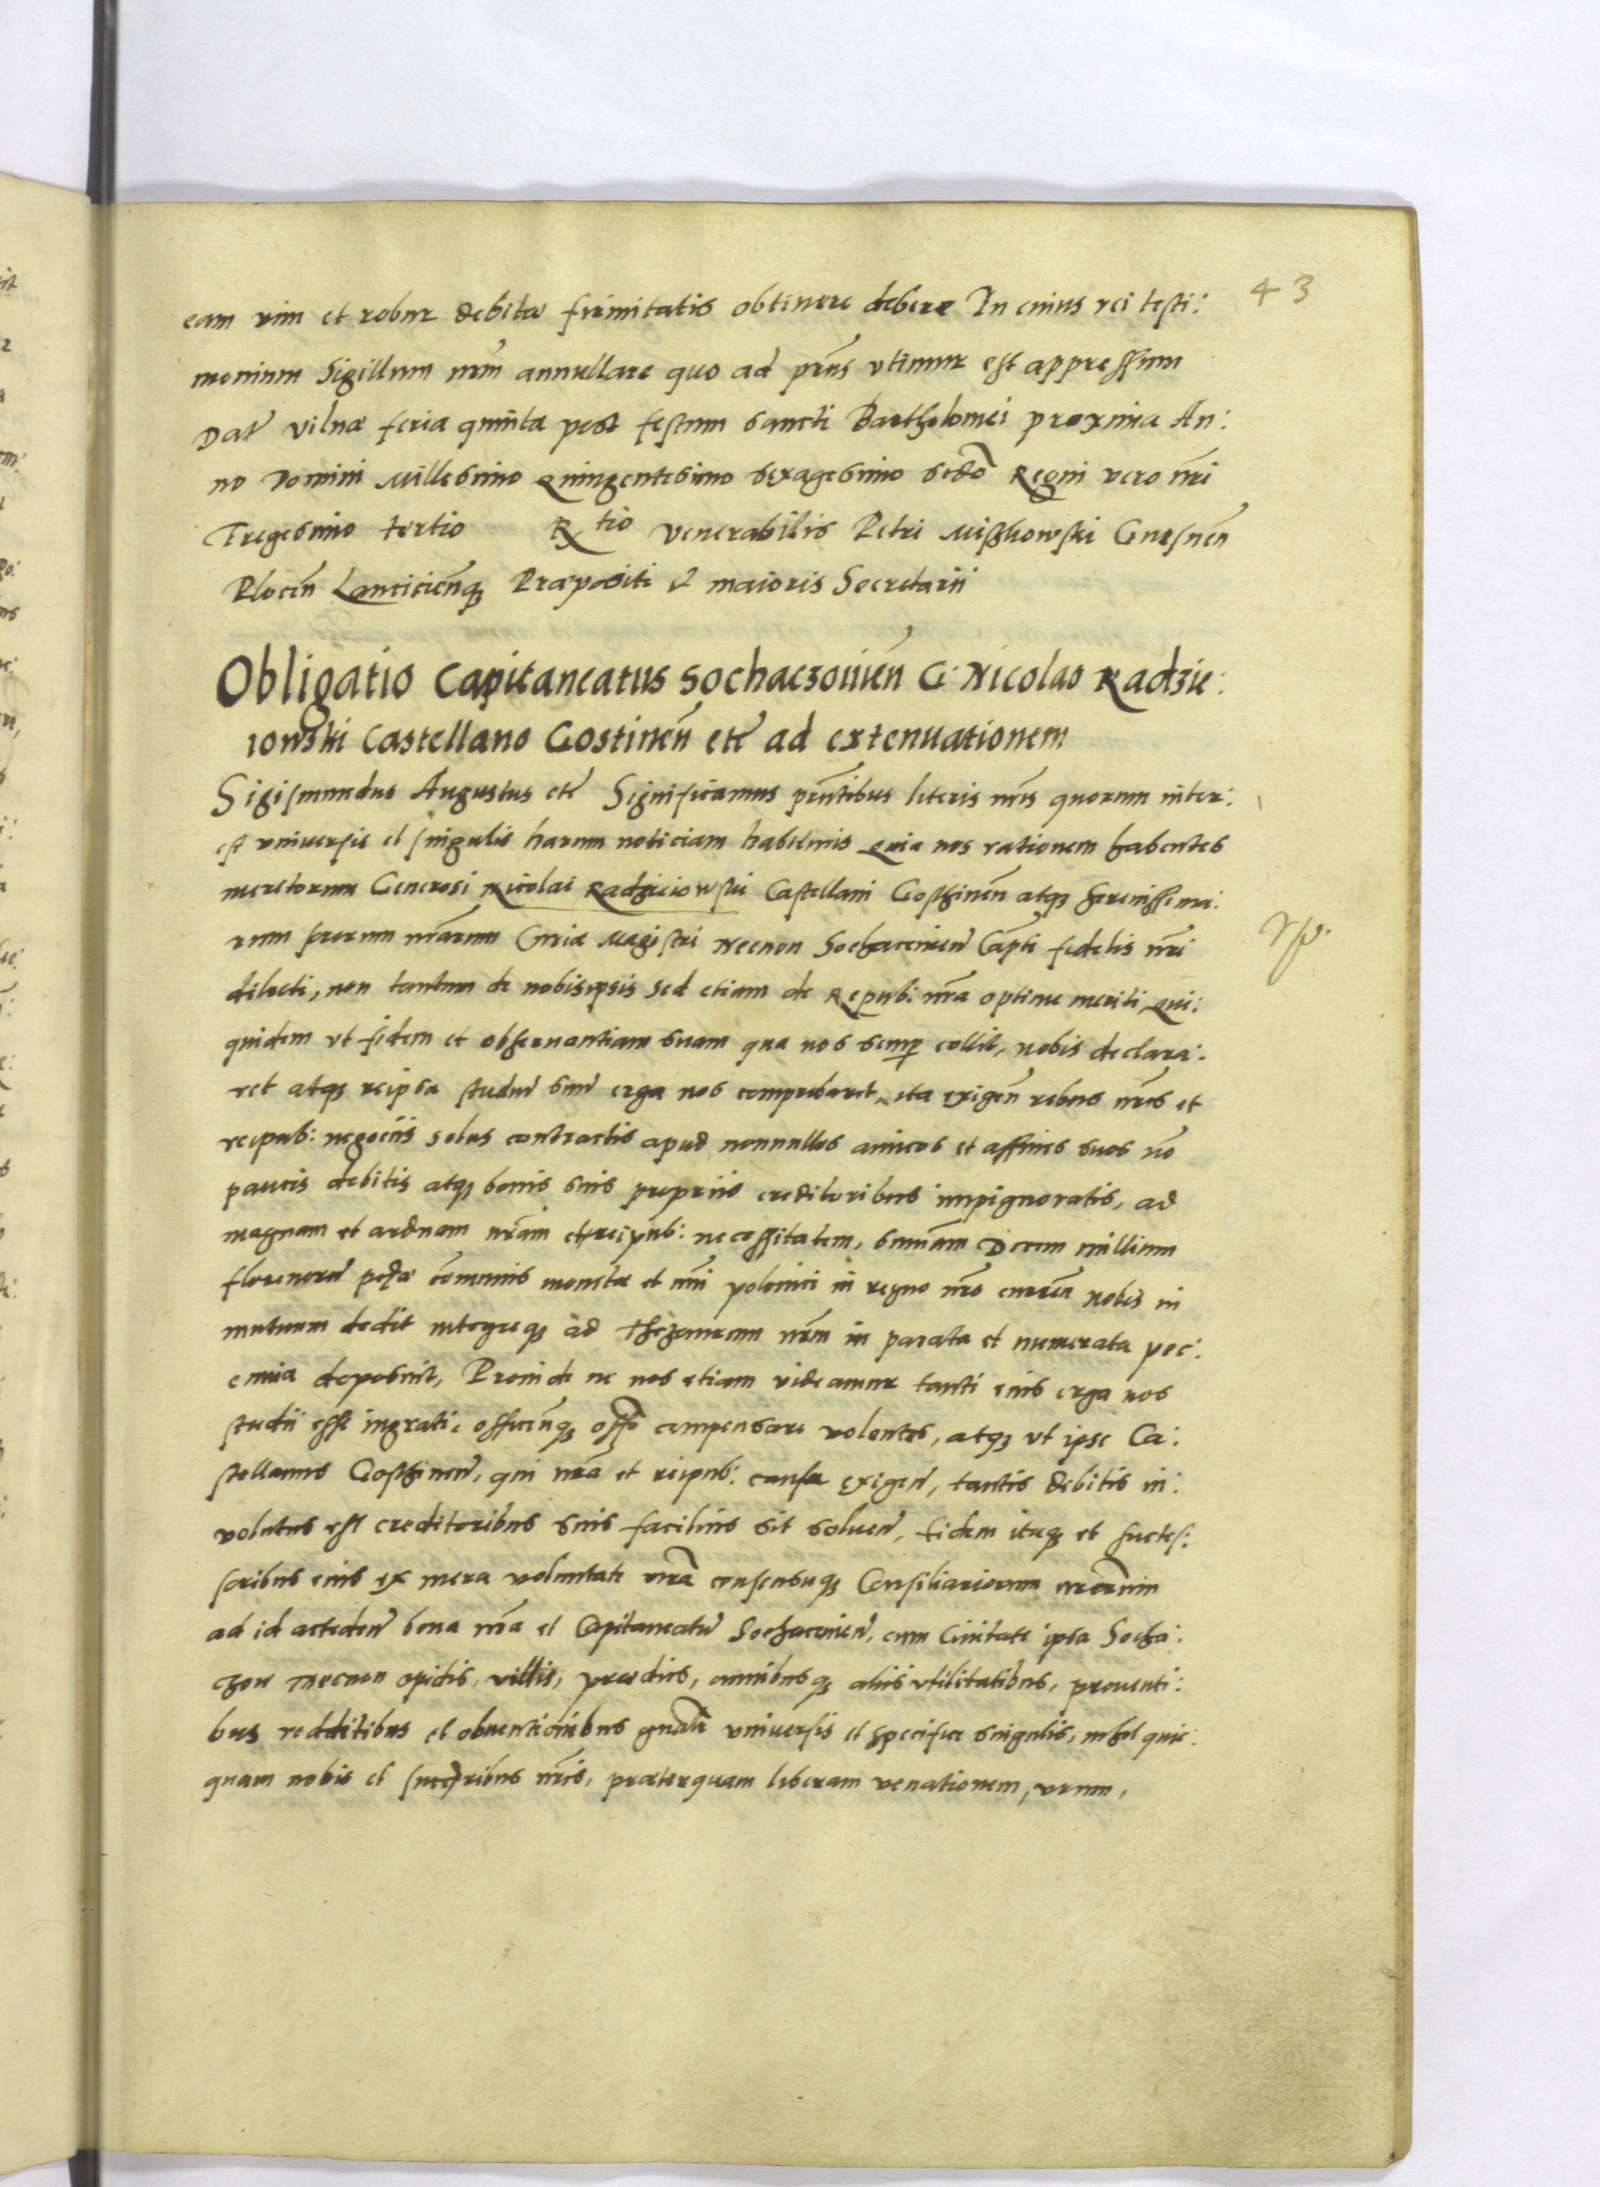 43
eam vim et robur debitæ firmitatis obtinere debere In cuius rei testi:
monium Sigillum nrm̃ annullare quo ad pr̃ns vtimur est appressum
Dat̃ Vilnæ feria quinta post festum sancti Bartholomei proxima An:
no Domini Millesimo Quingentesimo sexagesimo sc̃do Regni vero nr̃i
Tregesimo tertio Rtio Venerabilis Petri Miszkowski Gnesneñ
Ploceñ Lanticieñq3 Præpositi et maioris Secretarii
Obligatio Capitaneatus Sochaczowieñ G: Nicolao Radzie:
iowski Castellano Gostineñ etc̃ ad extenuationem
Sigismundus Augustus etc̃ Significamus pr̃ntibus literis nr̃is quorum inter:
est vniuersis et singulis harum noticiam habituris Quia nos rationem habentes
meritorum Generosi Nicolai Radzieiowski Castellani Gosthineñ atq3 Serenissima:
rum sororum nr̃arum Curiæ Magistri Necnon Sochacouieñ Capti fidelis nr̃i
dilecti, non tantum de nobisipsis sed etiam de Repub: nr̃a optime meriti, Qui:
quidem vt fidem et obseruantiam suam qua nos semp colit, nobis declara:
ret atq3 reipsa studiũ suũ erga nos comprobaret, ita exigeñ rebus nr̃is et
reipub: negociis solus contractis apud nonnullos amicos et affines suos nõ
paucis debitis atq3 bonis suis propriis creditoribus impignoratis, ad
magnam et arduam nr̃am et reipub: necessitatem, sum̃am Decem millium
florenorũ pec̃æ com̃unis monetæ et nr̃i polonici in regno nr̃o curreñ nobis in
mutuum dedit integreq3 ad Thezaurum nrm̃ in parata et numerata pec:
cunia deposuit, Proinde ne nos etiam videamur tanti eius erga nos
studii esse ingrati, officiũq3 offo compensare volentes, atq3 vt ipse Ca:
stellanus Gosthineñ, qui nr̃a et reipub: causa exigeñ, tantis debitis in:
volutus est creditoribus suis facilius sit soluen̄, Eidem itaq3 et succes:
soribus eius ex mera voluntate nr̃a consensuq3 Consiliariorum nr̃orum
ad id accedeñ bona nr̃a et Capitaneatũ Sochacouieñ, cum Ciuitate ipsa Socha:
czow Necnon opidis, villis, prædiis, omnibusq3 aliis vtilitatibus, prouenti:
bus redditibus et obuentionibus gñali vniuersis et specifice singulis, nihil quic:
quam nobis et succ̃oribus nr̃is, præterquam liberam venationem, vrum,